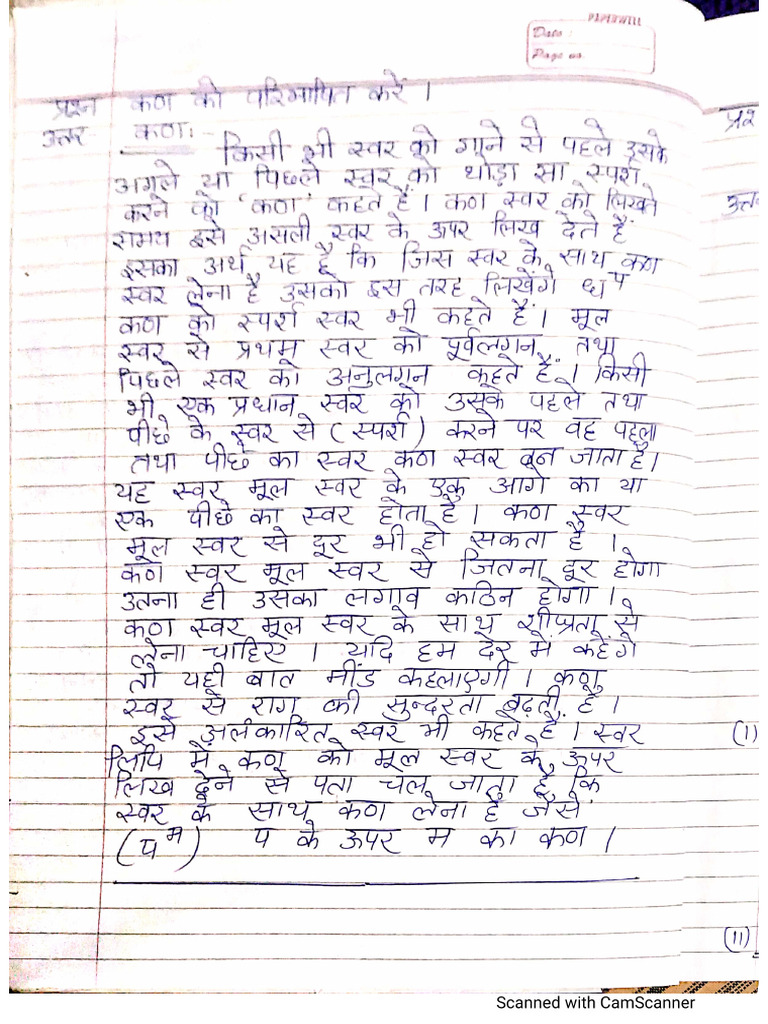 PAPERWELL
Date :
Page no.
प्रश्न कण को परिभाषित करें ।
उत्तर कण:-
किसी भी स्वर को गाने से पहले उसके
अगले या पिछले स्वर को थोड़ा सा स्पर्श
करने को 'कण' कहते हैं । कण स्वर को लिखते
समय इसे असली स्वर के ऊपर लिख देते हैं
इसका अर्थ यह है कि जिस स्वर के साथ कण
स्वर लेना है उसको इस तरह लिखेंगे ध प
कण को स्पर्श स्वर भी कहते हैं । मूल
स्वर से प्रथम स्वर को पूर्वलगन तथा
पिछले स्वर को अनुलगन कहते हैं । किसी
भी एक प्रधान स्वर को उसके पहले तथा
पीछे के स्वर से (स्पर्श) करने पर वह पहला
तथा पीछे का स्वर कण स्वर बन जाता है।
यह स्वर मूल स्वर के एक आगे का या
एक पीछे का स्वर होता है । कण स्वर
मूल स्वर से दूर भी हो सकता है ।
कण स्वर मूल स्वर से जितना दूर होगा
उतना ही उसका लगाव कठिन होगा ।
कण स्वर मूल स्वर के साथ शीघ्रता से
लेना चाहिए । यदि हम देर में कहेंगे
तो यही बात मींड कहलाएगी । कण
स्वर से राग की सुन्दरता बढ़ती है ।
इसे अलंकारित स्वर भी कहते हैं । स्वर
लिपि में कण को मूल स्वर के ऊपर
लिख देने से पता चल जाता है कि
स्वर के साथ कण लेना है जैसे
(प म) प के ऊपर म का कण ।
(I)
(II)
Scanned with CamScanner